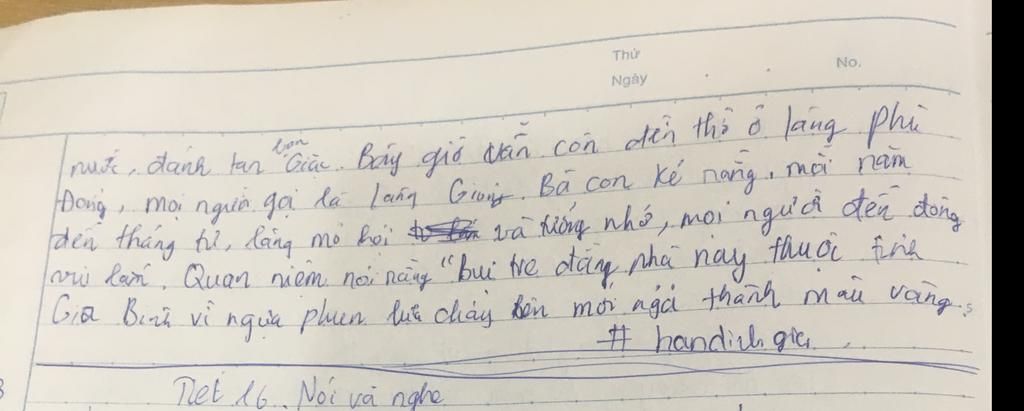 Thứ
Ngày
No.
nước, đánh tan bọn Giặc. Bây giờ vẫn còn đền thờ ở làng phù
Đổng, mọi người gọi là làng Gióng. Bà con kể rằng, mỗi năm
đến tháng tư, làng mở hội và tưởng nhớ, mọi người đến đông
vui lắm. Quan niệm nói rằng "bụi tre đằng nhà này thuộc tỉnh
Gia Bình vì ngựa phun lửa cháy lên mới ngả thành màu vàng.
Tiết 16. Nói và nghe